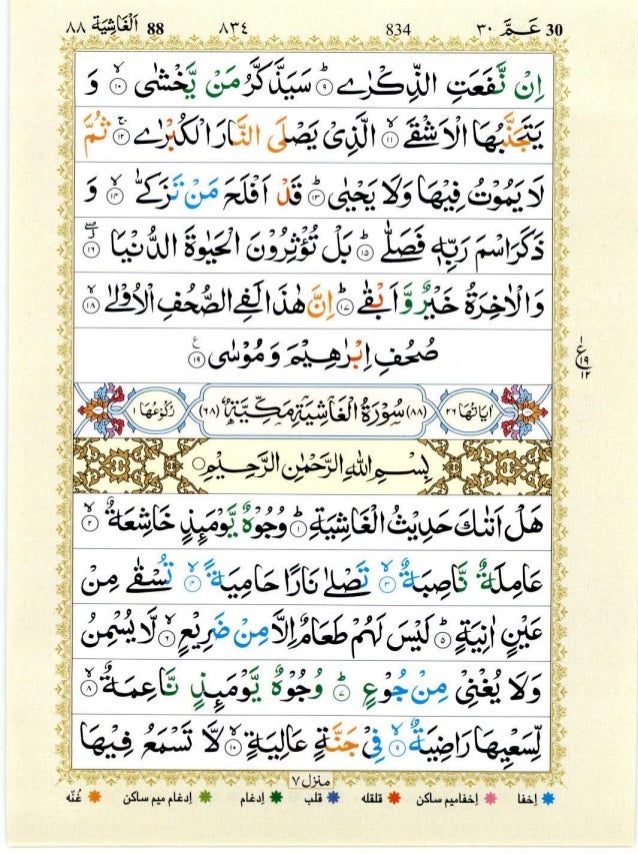 ٨٨ اَلْغَاشِيَة 88 ٨٣٤ 834 ٣٠ عَـمَّ 30
اِنْ نَّفَعَتِ الذِّكْرٰىؕ ۹ سَيَذَّكَّرُ مَنْ يَّخْشٰىۙ ۱۰ وَ
يَتَجَنَّبُهَا الْاَشْقَىۙ ۱۱ الَّذِىْ يَصْلَى النَّارَ الْكُبْرٰىۚ ۱۲ ثُمَّ
لَا يَمُوْتُ فِيْهَا وَلَا يَحْيٰىؕ ۱۳ قَدْ اَفْلَحَ مَنْ تَزَكّٰىۙ ۱۴ وَ
ذَكَرَ اسْمَ رَبِّهٖ فَصَلّٰىؕ ۱۵ بَلْ تُؤْثِرُوْنَ الْحَيٰوةَ الدُّنْيَا ۱۶
وَالْاٰخِرَةُ خَيْرٌ وَّاَبْقٰىؕ ۱۷ اِنَّ هٰذَا لَفِى الصُّحُفِ الْاُوْلٰىۙ ۱۸
صُحُفِ اِبْرٰهِيْمَ وَمُوْسٰى ۱۹
ع ۱۹ ۱۲
اٰيَاتُهَا ۲۶ (۸۸) سُوْرَةُ الْغَاشِيَةِ مَكِّيَّةٌ (۶۸) رُكُوْعُهَا ۱
بِسْمِ اللّٰهِ الرَّحْمٰنِ الرَّحِيْمِ
هَلْ اَتٰىكَ حَدِيْثُ الْغَاشِيَةِؕ ۱ وُجُوْهٌ يَّوْمَئِذٍ خَاشِعَةٌۙ ۲
عَامِلَةٌ نَّاصِبَةٌۙ ۳ تَصْلٰى نَارًا حَامِيَةًۙ ۴ تُسْقٰى مِنْ
عَيْنٍ اٰنِيَةٍؕ ۵ لَيْسَ لَهُمْ طَعَامٌ اِلَّا مِنْ ضَرِيْعٍۙ ۶ لَّا يُسْمِنُ
وَلَا يُغْنِىْ مِنْ جُوْعٍؕ ۷ وُجُوْهٌ يَّوْمَئِذٍ نَّاعِمَةٌۙ ۸
لِّسَعْيِهَا رَاضِيَةٌۙ ۹ فِىْ جَنَّةٍ عَالِيَةٍۙ ۱۰ لَّا تَسْمَعُ فِيْهَا
منزل ۷
اِخفا اِخفامیم ساکن قلقله قلب اِدغام اِدغام میم ساکن غُنّه